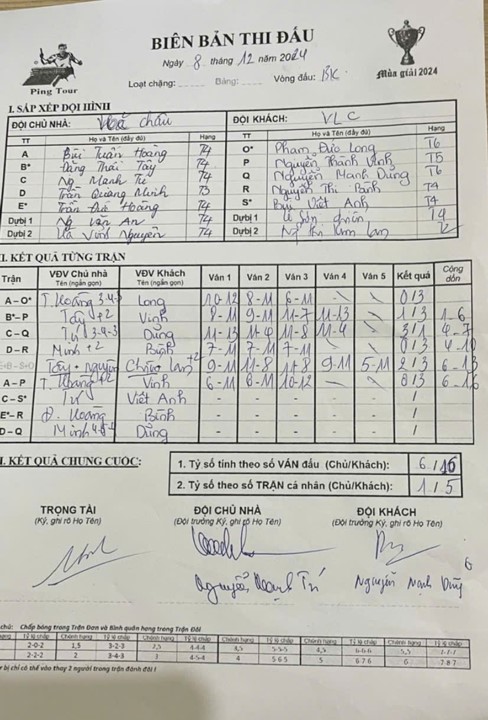 BIÊN BẢN THI ĐẤU
Ping Tour
Ngày 8 tháng 12 / 2024
Mùa giải 2024
Loại chặng: Bảng: Vòng đấu: BK
I. SẮP XẾP ĐỘI HÌNH
ĐỘI CHỦ NHÀ: ĐỘI KHÁCH: VLC
TT Họ và Tên (đầy đủ) Hạng TT Họ và Tên (đầy đủ) Hạng
A Bùi Tuấn Hoàng T4 O* Phạm Đức Long T6
B* Đặng Thái Tây T4 P Nguyễn Thành Vinh T5
C Ng Mạnh Trí T4 Q Nguyễn Mạnh Dũng T6
D Trần Quang Minh T3 R Nguyễn Thị Bình T4
E* Trần Hoàng T4 S* Bùi Viết Anh T4
Dự bị 1 Ng Văn An T4 Dự bị 1 Lê Sơn T4
Dự bị 2 Vinh Nguyên T4 Dự bị 2 Ng Thị Kim Lan
II. KẾT QUẢ TỪNG TRẬN
Trận VĐV Chủ nhà VĐV Khách Ván 1 Ván 2 Ván 3 Ván 4 Ván 5 Kết quả Cộng dồn
Tên (ngắn gọn) Tên (ngắn gọn)
A – O* T. Hoàng 3-4-3 Long 10-12 8-11 6-11 0/3
B* – P Tây +2 Vinh 8-11 9-11 11-7 11-13 1/3 1-6
C – Q Trí 3-4-3 Dũng 11-13 11-4 11-8 11-4 3/1 4-7
D – R Minh +2 Bình 7-11 7-11 7-11 0/3 4-10
Tây + Nguyên Lan +2 9-11 11-8 11-8 9-11 5-11 2/3 6-13
A – P T. Hoàng +2 Vinh 6-11 10-12 0/3 6-16
C – S* Trí Viết Anh - - - - - /
E* – R Đ. Hoàng Bình - - - - - /
D – Q Minh Dũng - - - - - /
KẾT QUẢ CHUNG CUỘC:
1. Tỷ số tính theo số VÁN đấu (Chủ/Khách): 6/16
2. Tỷ số theo số TRẬN cá nhân (Chủ/Khách): 1/5
TRỌNG TÀI ĐỘI CHỦ NHÀ ĐỘI KHÁCH
(Ký, ghi rõ Họ Tên) (Đội trưởng Ký, ghi rõ Họ Tên) (Đội trưởng Ký, ghi rõ Họ Tên)
Nguyễn Mạnh Trí Nguyễn Mạnh Dũng
chú: Chấp bóng trong Trận Đơn và Bình quân hạng trong Trận Đôi
Tỷ lệ chấp Chênh hạng Tỷ lệ chấp Chênh hạng Tỷ lệ chấp Chênh hạng Tỷ lệ chấp Chênh hạng Tỷ lệ chấp Chênh hạng Tỷ lệ chấp
2-0-2 1,5 3-2-3 2,5 4-4-4 3,5 5-5-5 4,5 6-6-6 5,5 7-7-7
2-2-2 2 3-4-3 3 4-5-4 4 5-6-5 5 6-7-6 6 7-8-7
bị chỉ có thể vào thay 2 người trong trận đánh đôi !